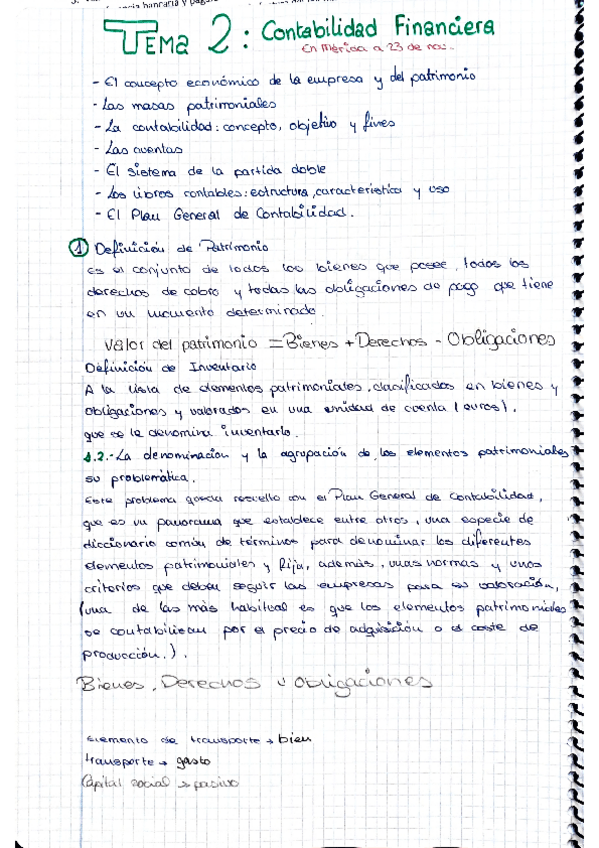 bancaria y pag
TEMA 2: Contabilidad Financiera
En Mérida a 23 de nov..
- El concepto económico de la empresa y del patrimonio
- Las masas patrimoniales
- La contabilidad: concepto, objetivo y fines
- Las cuentas
- El sistema de la partida doble
- Los libros contables: estructura, característica y uso
- El Plan General de Contabilidad.
1 Definición de Patrimonio
es el conjunto de todos los bienes que posee, todos los
derechos de cobro y todas las obligaciones de pago que tiene
en un momento determinado.
Valor del patrimonio = Bienes + Derechos - Obligaciones
Definición de Inventario
A la lista de elementos patrimoniales, clasificados en bienes y
obligaciones y valorados en una unidad de cuenta (euros),
que se le denomina inventario.
1.2.- La denominación y la agrupación de los elementos patrimoniales
su problemática.
Este problema queda resuelto con el Plan General de Contabilidad,
que es un panorama que establece entre otros, una especie de
diccionario común de términos para denominar los diferentes
elementos patrimoniales y fija, además, unas normas y unos
criterios que deben seguir las empresas para su valoración,
(una de las más habitual es que los elementos patrimoniales
se contabilizan por el precio de adquisición o el coste de
producción.).
Bienes, Derechos y obligaciones
Elemento de transporte → bien
transporte → gasto
Capital social → pasivo